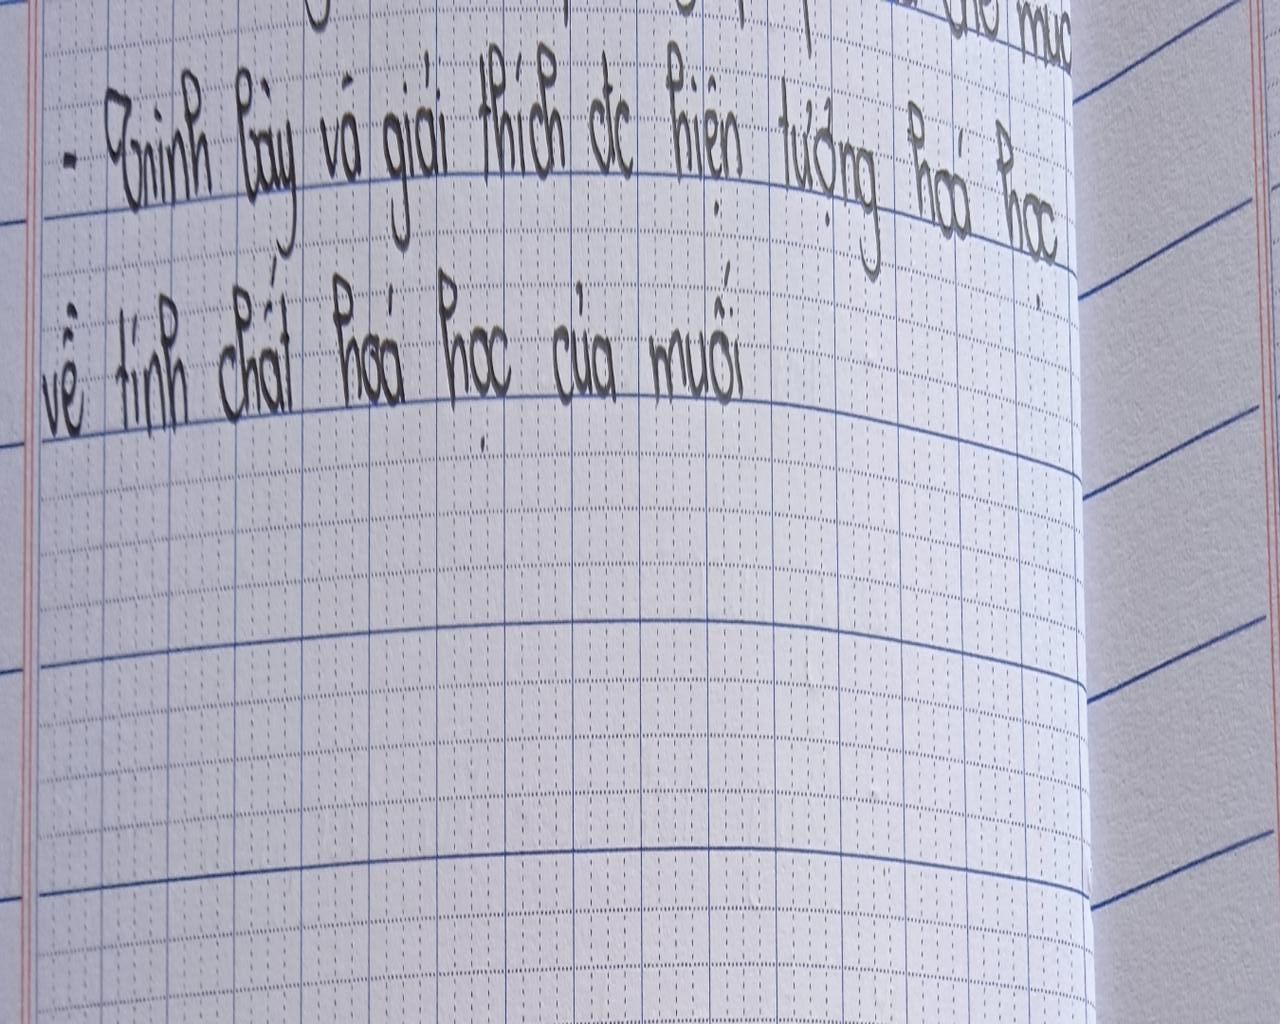 thể mục
- Trình bày và giải thích đc hiện tượng hoá học
về tính chất hoá học của muối